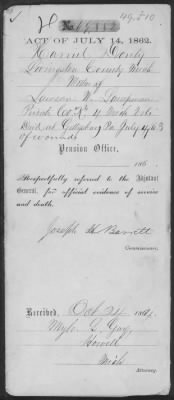 49,510
No.
ACT OF JULY 14, 1862.
Livingston County Mich
Widow of
Private Co. "K" 4 Mich Vols
Died at Gettysburg Pa July 4th 63
of wounds
Pension Office,
186 .
Respectfully referred to the Adjutant
General, for official evidence of service
and death.
Joseph H Barrett
Commissioner.
Received, Oct 24 1864.
Gay,
Howell
Mich
Attorney.